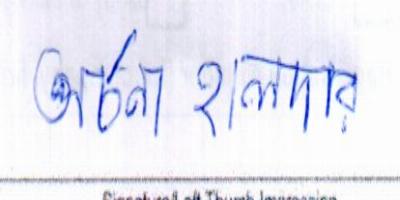 অর্চনা হালদার
Signature/Left Thumb Impression